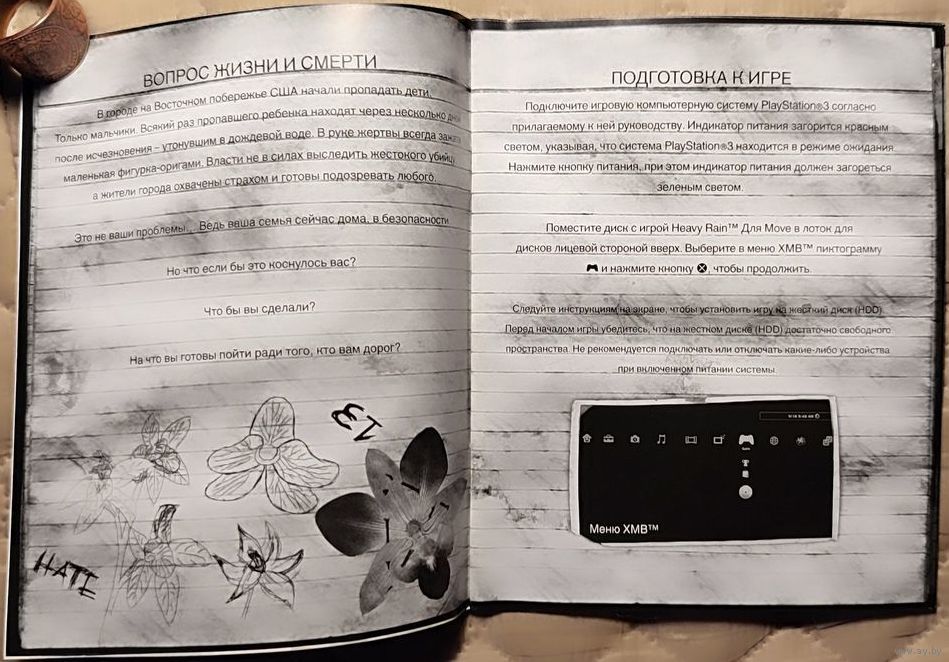 ВОПРОС ЖИЗНИ И СМЕРТИ
В городе на Восточном побережье США начали пропадать дети.
Только мальчики. Всякий раз пропавшего ребенка находят через несколько дней
после исчезновения – утонувшим в дождевой воде. В руке жертвы всегда зажата
маленькая фигурка-оригами. Власти не в силах выследить жестокого убийцу,
а жители города охвачены страхом и готовы подозревать любого.
Это не ваши проблемы... Ведь ваша семья сейчас дома, в безопасности
Но что если бы это коснулось вас?
Что бы вы сделали?
На что вы готовы пойти ради того, кто вам дорог?
13
HATE
ПОДГОТОВКА К ИГРЕ
Подключите игровую компьютерную систему PlayStation®3 согласно
прилагаемому к ней руководству. Индикатор питания загорится красным
светом, указывая, что система PlayStation®3 находится в режиме ожидания.
Нажмите кнопку питания, при этом индикатор питания должен загореться
зеленым светом.
Поместите диск с игрой Heavy Rain™ Для Move в лоток для
дисков лицевой стороной вверх. Выберите в меню XMB™ пиктограмму
и нажмите кнопку ⊗, чтобы продолжить.
Следуйте инструкциям на экране, чтобы установить игру на жесткий диск (HDD).
Перед началом игры убедитесь, что на жестком диске (HDD) достаточно свободного
пространства. Не рекомендуется подключать или отключать какие-либо устройства
при включенном питании системы.
Меню XMB™
www.ay.by